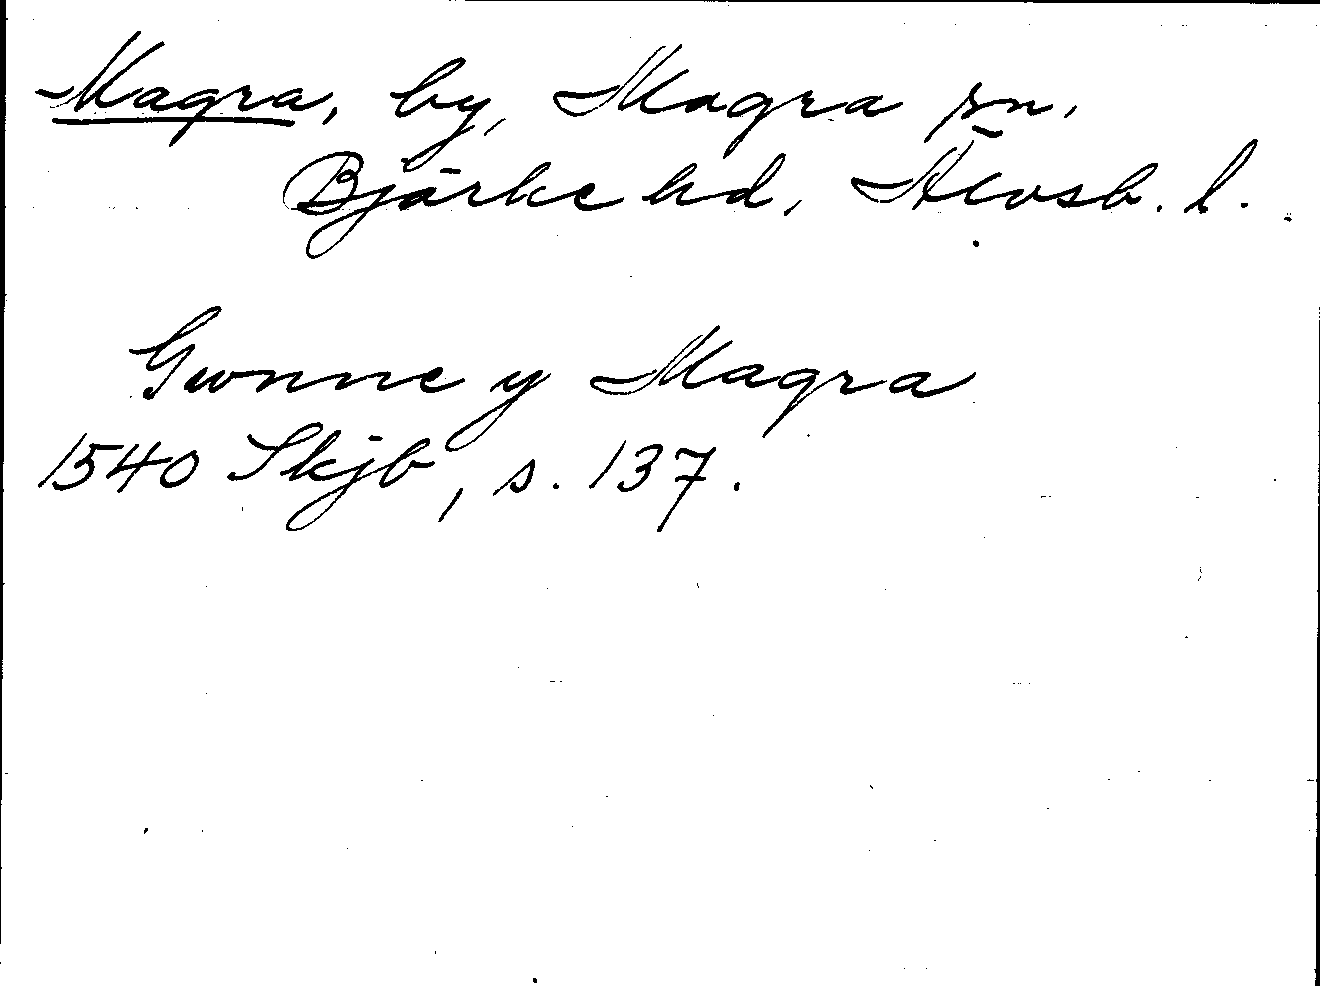 Magra, by, Magra sn.
Bjärke hd, Älvsb. l.
Gwnne y Magra
1540 Skjb, s. 137.